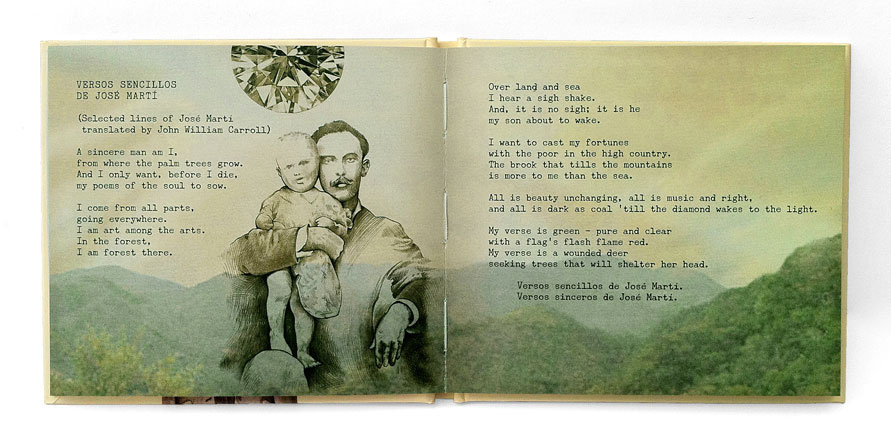 VERSOS SENCILLOS
DE JOSÉ MARTÍ
(Selected lines of José Martí
translated by John William Carroll)
A sincere man am I,
from where the palm trees grow.
And I only want, before I die,
my poems of the soul to sow.
I come from all parts,
going everywhere.
I am art among the arts.
In the forest,
I am forest there.
Over land and sea
I hear a sigh shake.
And, it is no sigh; it is he
my son about to wake.
I want to cast my fortunes
with the poor in the high country.
The brook that tills the mountains
is more to me than the sea.
All is beauty unchanging, all is music and right,
and all is dark as coal 'till the diamond wakes to the light.
My verse is green - pure and clear
with a flag's flash flame red.
My verse is a wounded deer
seeking trees that will shelter her head.
Versos sencillos de José Martí.
Versos sinceros de José Martí.